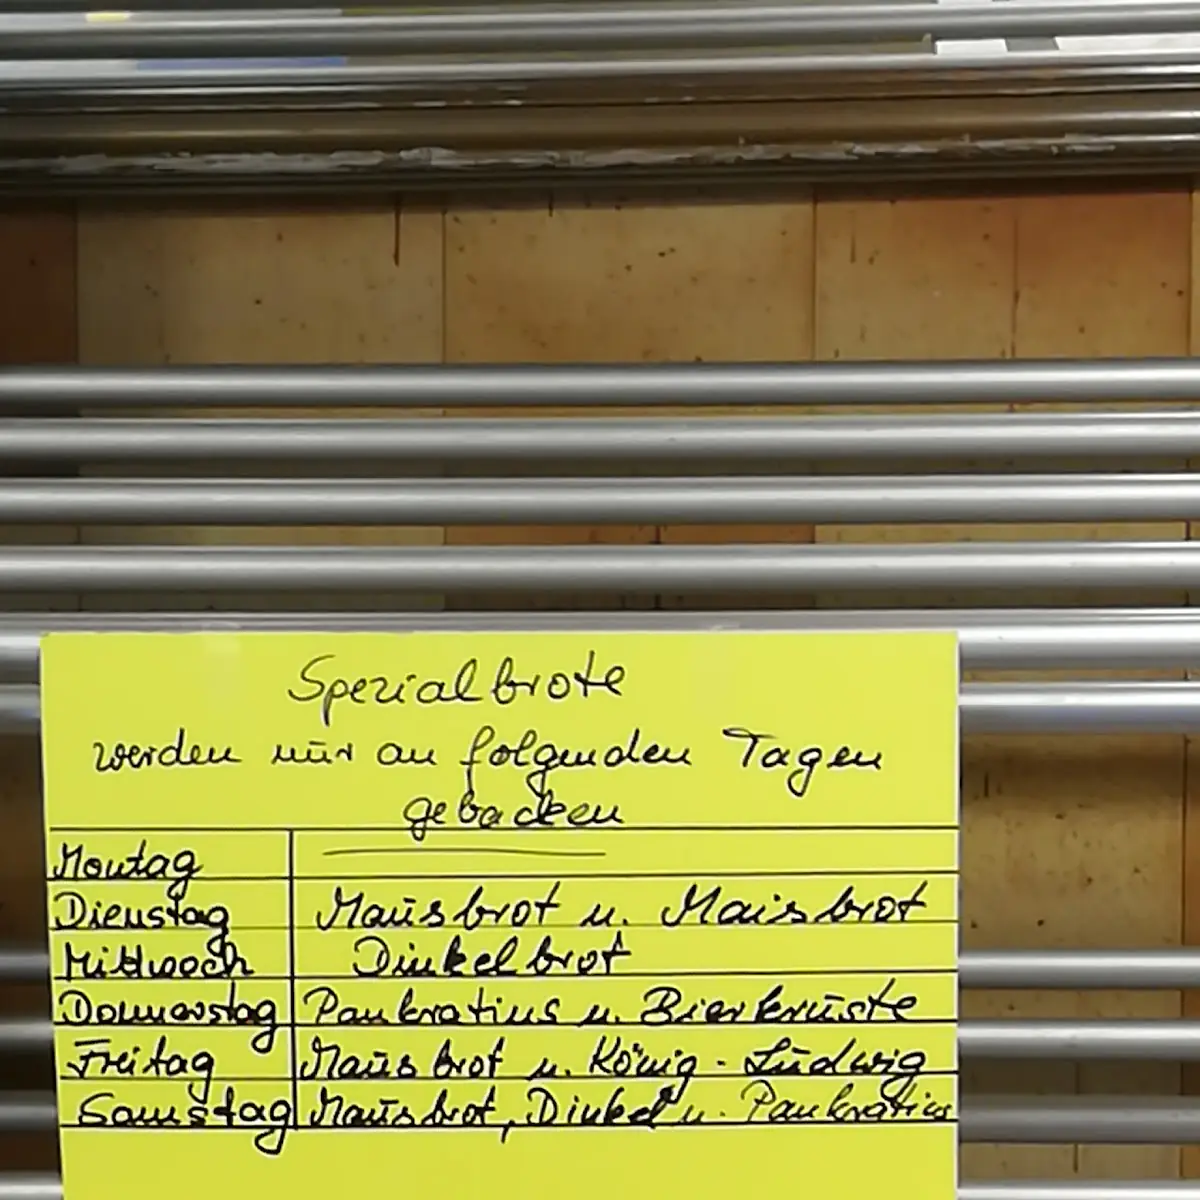 Spezialbrote
werden nur an folgenden Tagen
gebacken
Montag
Dienstag Mausbrot u. Maisbrot
Mittwoch Dinkelbrot
Donnerstag Pankratius u. Bierkruste
Freitag Mausbrot u. König-Ludwig
Samstag Mausbrot, Dinkel u. Pankratius